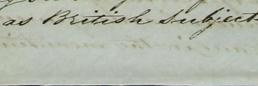 as British Subject